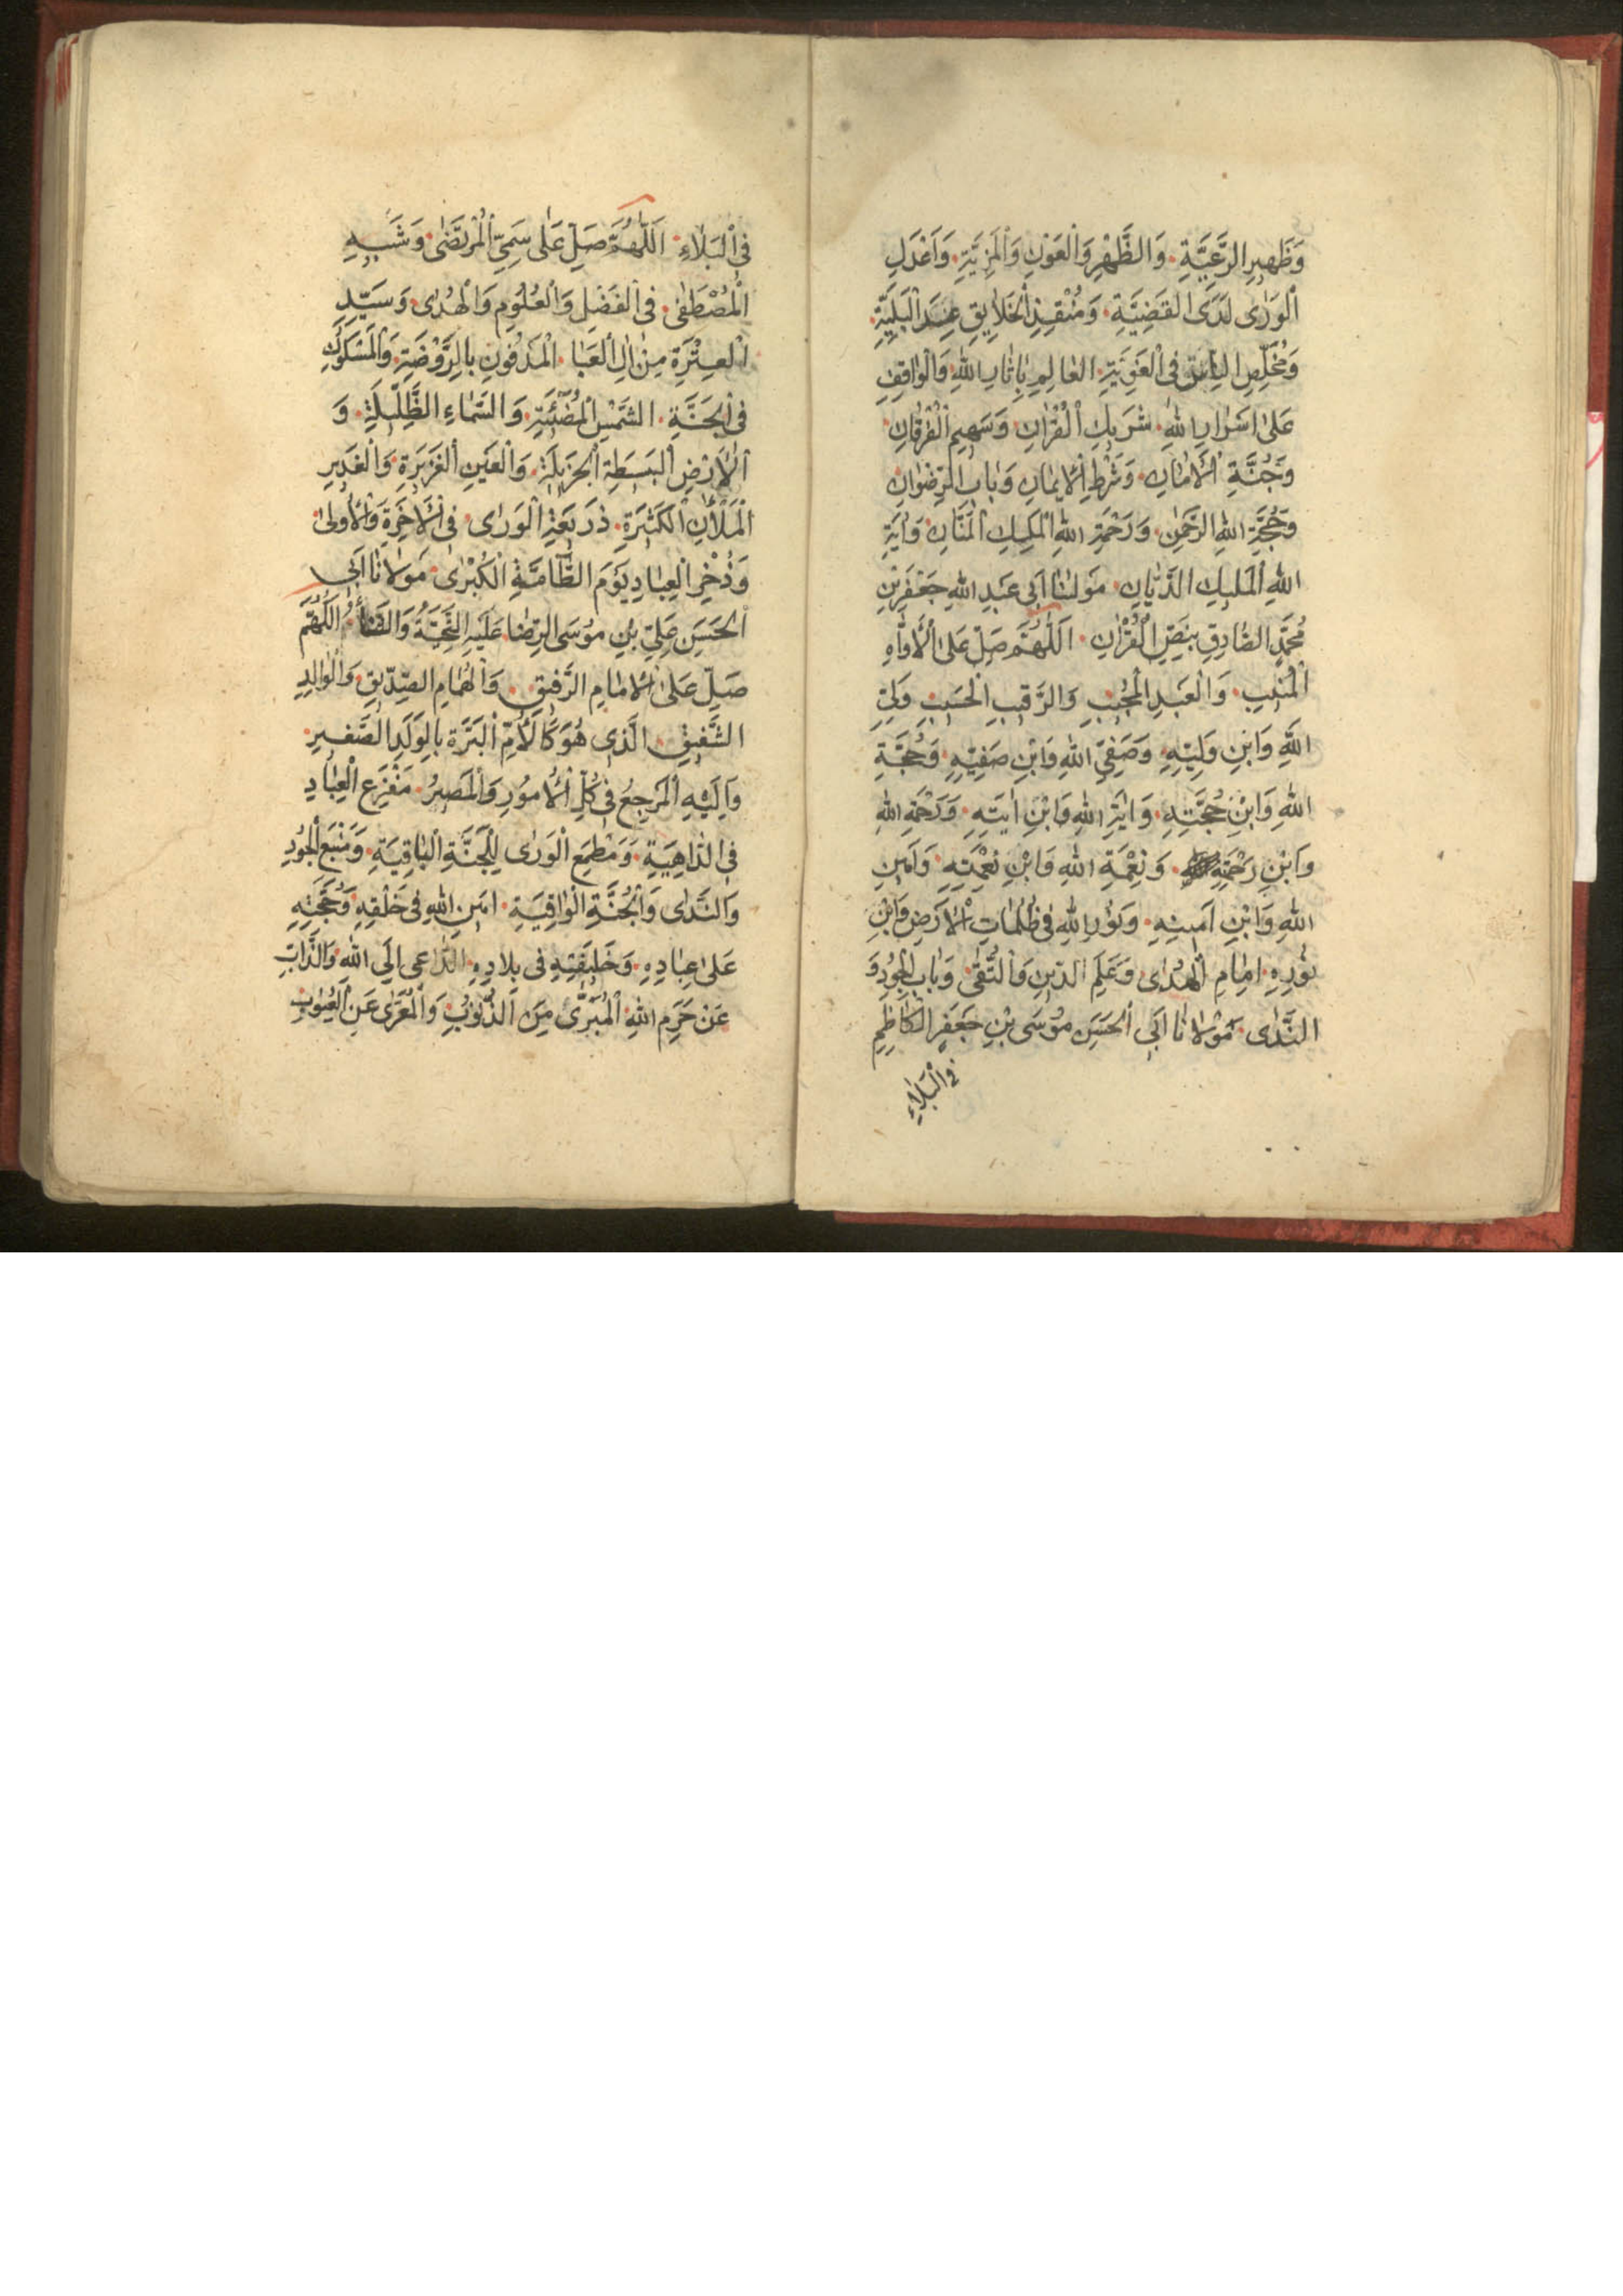 وَظَهِيرِ الرَّعِيَّةِ وَالظَّهْرِ وَالْعَوْنِ وَالْمَزِيَّةِ وَاَعْدَلِ
الْوَرٰى لَدَى الْقَضِيَّةِ وَمُنْقِذِ الْخَلَايِقِ عِنْدَ الْبَلِيَّةِ
وَمُخَلِّصِ فِى الْعَالِمِ بِاٰيَاتِ اللهِ وَالْوَاقِفِ
عَلٰى اَسْرَارِ اللهِ شَرِيكِ الْقُرْاٰنِ وَسَهِيمِ الْفُرْقَانِ
وَجُنَّةِ الْاَمَانِ وَشَرْطِ الْاِيمَانِ وَبَابِ الرِّضْوَانِ
وَحُجَّةِ اللهِ الرَّحْمٰنِ وَرَحْمَةِ اللهِ الْمَلِيكِ الْمَنَّانِ وَاٰيَةِ
اللهِ الْمَلِيكِ الدَّيَّانِ مَوْلٰنَا اَبِى عَبْدِ اللهِ جَعْفَرِ بْنِ
مُحَمَّدٍ الصَّادِقِ بِنَصِّ الْقُرْاٰنِ اَللّٰهُمَّ صَلِّ عَلَى الْاَوَّاهِ
الْمُنِيبِ وَالْعَبْدِ الْمُجِيبِ وَالرَّقِيبِ الْحَسِيبِ وَلِيِّ
اللهِ وَابْنِ وَلِيِّهِ وَصَفِيِّ اللهِ وَابْنِ صَفِيِّهِ وَحُجَّةِ
اللهِ وَابْنِ حُجَّتِهِ وَاٰيَةِ اللهِ وَابْنِ اٰيَتِهِ وَرَحْمَةِ اللهِ
وَابْنِ رَحْمَتِهِ وَنِعْمَةِ اللهِ وَابْنِ نِعْمَتِهِ وَاَمِينِ
اللهِ وَابْنِ اَمِينِهِ وَنُورِ اللهِ فِى ظُلُمَاتِ الْاَرْضِ وَابْنِ
نُورِهِ اِمَامِ الْهُدٰى وَعَلَمِ الدِّينِ وَالتُّقٰى وَبَابِ الْجُودِ وَ
النَّدٰى مَوْلَانَا اَبِى الْحَسَنِ مُوسَى بْنِ جَعْفَرٍ الْكَاظِمِ
فِى الْبَلَاءِ
فِى الْبَلَاءِ اَللّٰهُمَّ صَلِّ عَلٰى سَمِيِّ الْمُرْتَضٰى وَشَبِيهِ
الْمُصْطَفٰى فِى الْفَضْلِ وَالْعُلُومِ وَالْهُدٰى وَسَيِّدِ
الْعِتْرَةِ مِنْ اٰلِ الْعَبَا الْمَدْفُونِ بِالرَّوْضَةِ وَالْمَسْكُوكِ
فِى الْجَنَّةِ الشَّمْسِ الْمُضِيئَةِ وَالسَّمَاءِ الظَّلِيلَةِ وَ
الْاَرْضِ الْبَسِيطَةِ الْجَزِيلَةِ وَالْعَيْنِ الْغَزِيرَةِ وَالْغَدِيرِ
الْمَلْاٰنِ الْكَثِيرَةِ ذَرِيعَةِ الْوَرٰى فِى الْاٰخِرَةِ وَالْاُولٰى
وَذُخْرِ الْعِبَادِ يَوْمَ الطَّامَّةِ الْكُبْرٰى مَوْلَانَا اَبِى
الْحَسَنِ عَلِيِّ بْنِ مُوسَى الرِّضَا عَلَيْهِ التَّحِيَّةُ وَالثَّنَاءُ اَللّٰهُمَّ
صَلِّ عَلَى الْاِمَامِ الرَّفِيقِ وَالْهُمَامِ الصِّدِّيقِ وَالْوَالِدِ
الشَّفِيقِ الَّذِى هُوَ كَالْاُمِّ الْبَرَّةِ بِالْوَلَدِ الصَّغِيرِ
وَاِلَيْهِ الْمَرْجِعُ فِى كُلِّ الْاُمُورِ وَالْمَصِيرُ مَفْزَعِ الْعِبَادِ
فِى الدَّاهِيَةِ وَمَطْمَعِ الْوَرٰى لِلْجَنَّةِ الْبَاقِيَةِ وَمَنْبَعِ الْجُودِ
وَالنَّدٰى وَالْجُنَّةِ الْوَاقِيَةِ اَمِينِ اللهِ فِى خَلْقِهِ وَحُجَّتِهِ
عَلٰى عِبَادِهِ وَخَلِيفَتِهِ فِى بِلَادِهِ الدَّاعِى اِلَى اللهِ وَالذَّابِّ
عَنْ حَرَمِ اللهِ الْمُبَرَّىْ مِنَ الذُّنُوبِ وَالْمُعَرّٰى عَنِ الْعُيُوبِ